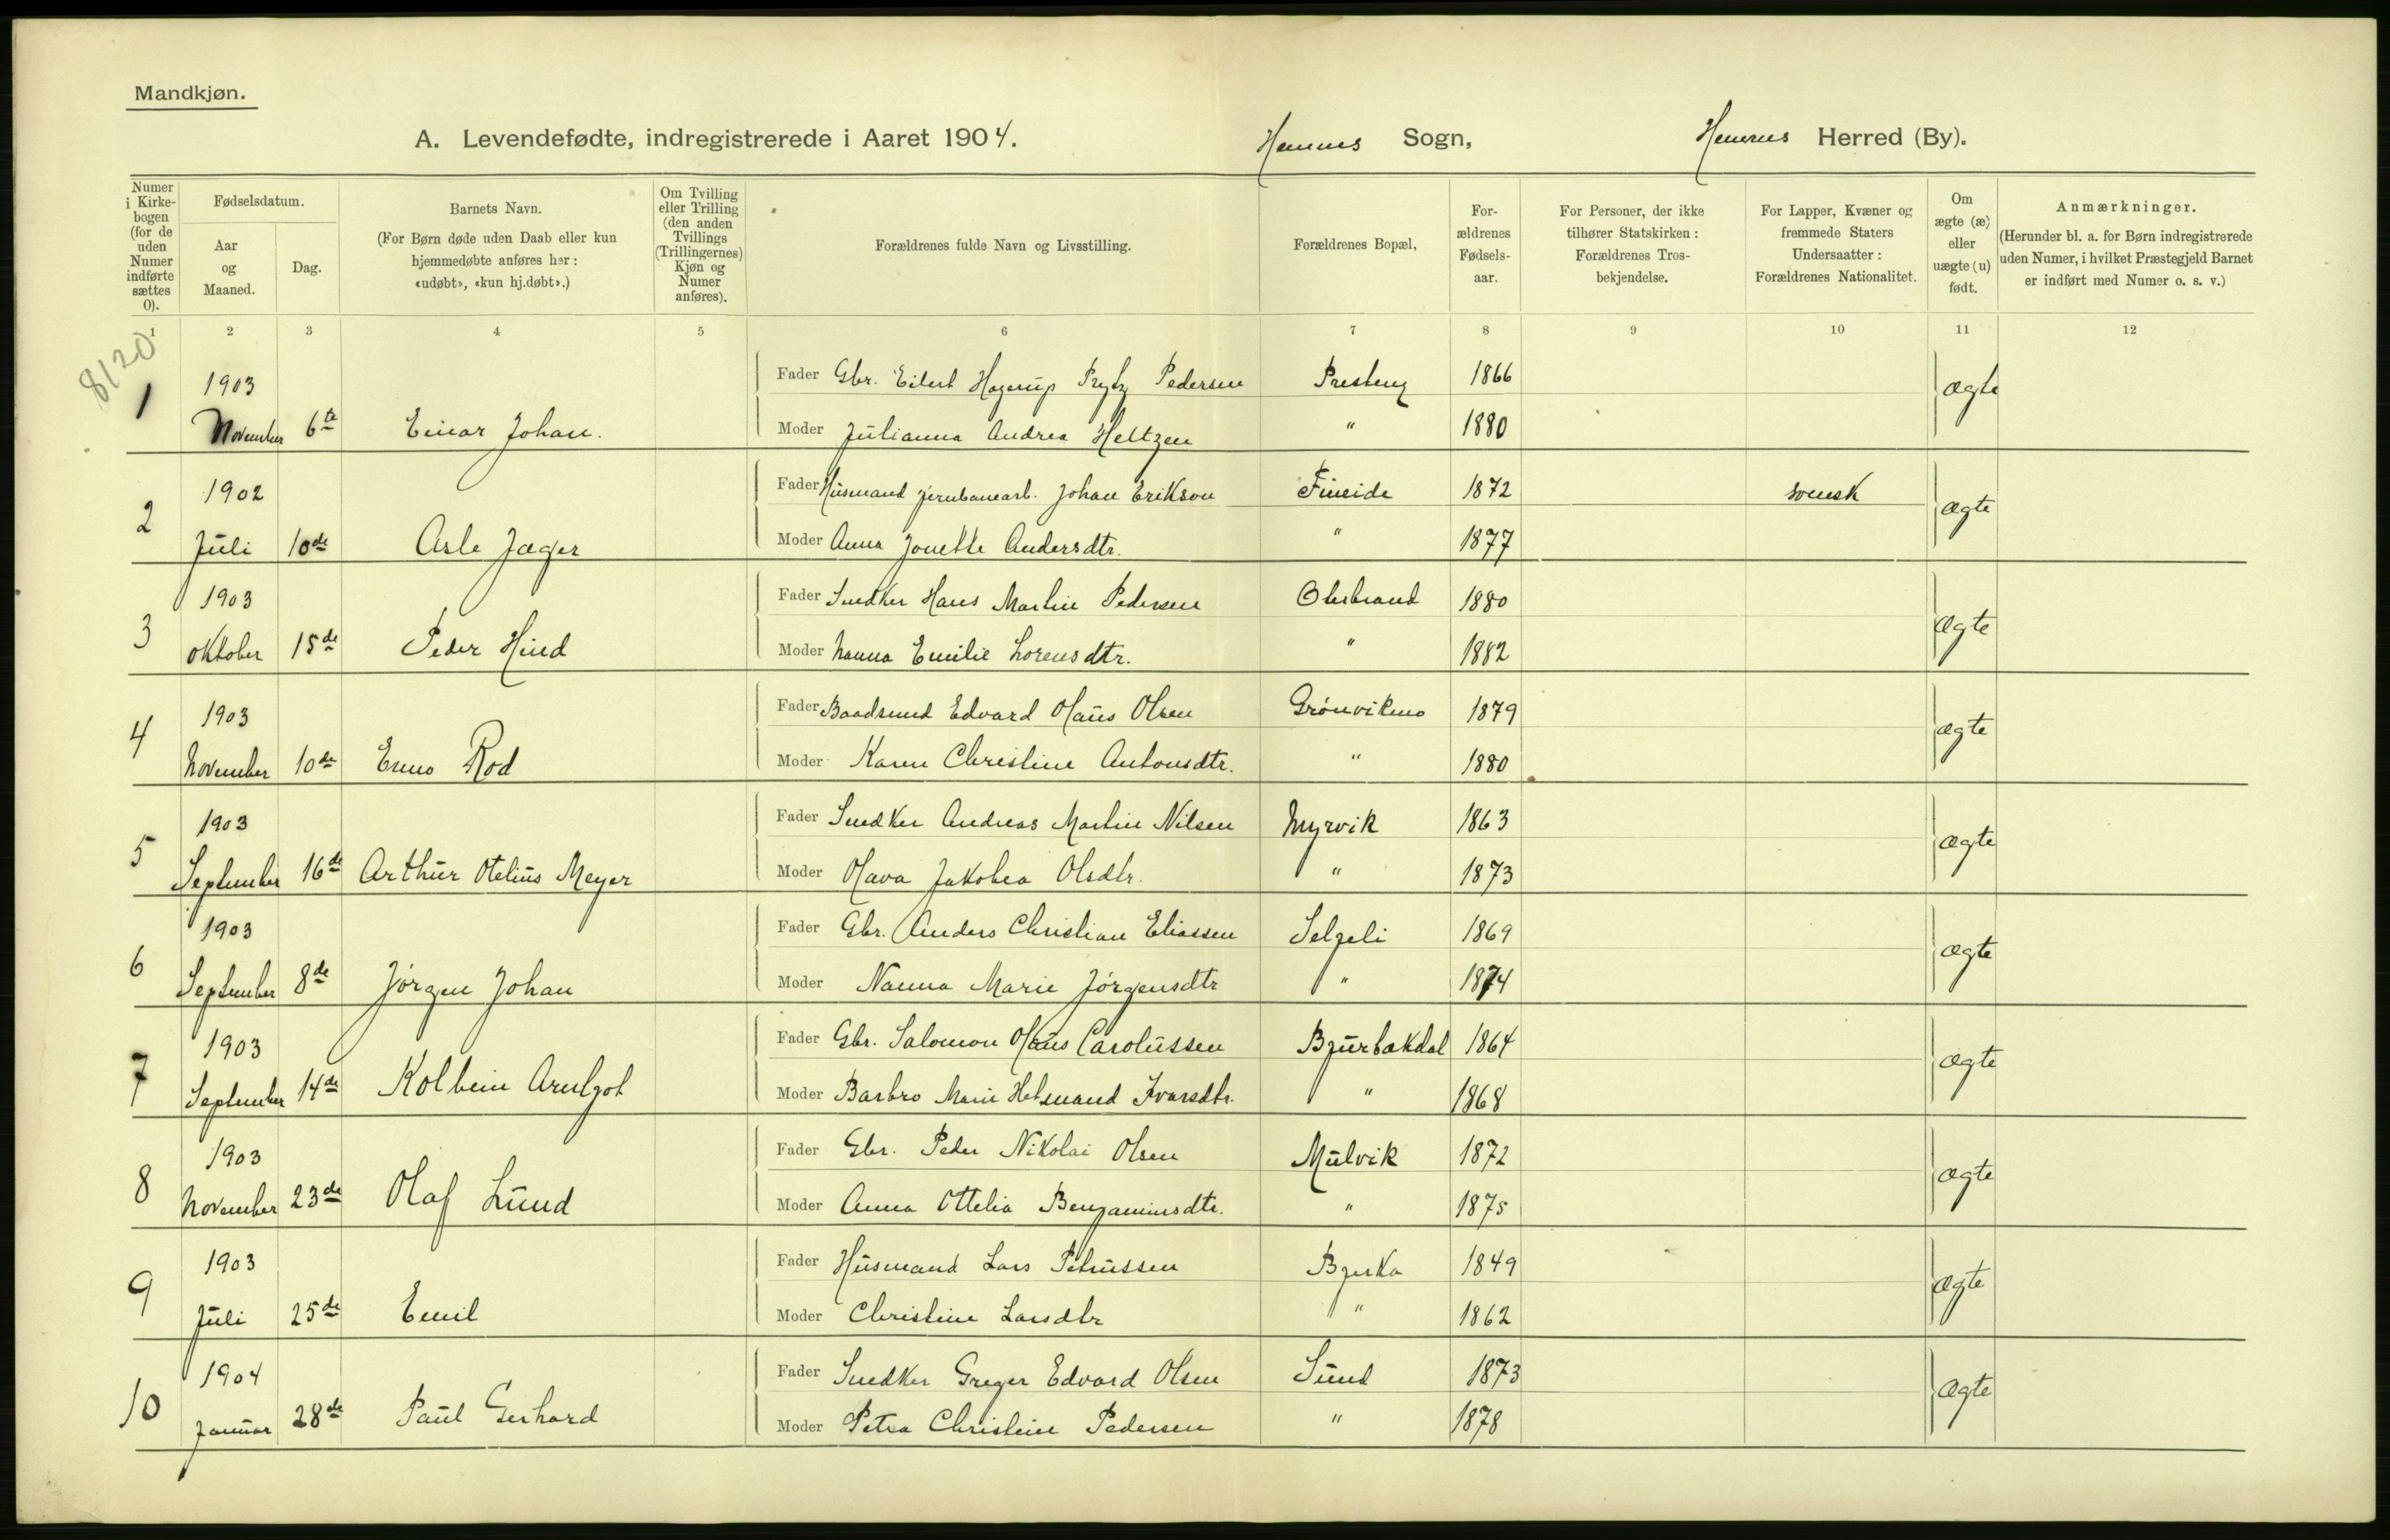 Mandkjøn.
A. Levendefødte, indregistrerede i Aaret 1904. Hemnes Sogn, Hemnes Herred (By).
Numer i Kirkebogen (for de uden Numer indførte sættes 0).
Fødselsdatum.
Aar og Maaned.
Dag.
Barnets Navn.
(For Børn døde uden Daab eller kun hjemmedøbte anføres her: «udøbt», «kun hj.døbt».)
Om Tvilling eller Trilling (den anden Tvillings (Trillingernes) Kjøn og Numer anføres).
Forældrenes fulde Navn og Livsstilling.
Forældrenes Bopæl,
Forældrenes Fødselsaar.
For Personer, der ikke tilhører Statskirken: Forældrenes Trosbekjendelse.
For Lapper, Kvæner og fremmede Staters Undersaatter: Forældrenes Nationalitet.
Om ægte (æ) eller uægte (u) født.
Anmærkninger.
(Herunder bl. a. for Børn indregistrerede uden Numer, i hvilket Præstegjeld Barnet er indført med Numer o. s. v.)
1 2 3 4 5 6 7 8 9 10 11 12
8120
1 1903 Fader Gbr. Eilert Hagerup Prytz Pedersen Presteng 1866 ægte
November 6te Einar Johan. Moder Julianna Andrea Heltzen " 1880
2 1902 Fader Husmand jernbanearb. Johan Erikson Fineide 1872 svensk ægte
Juli 10de Asle Jæger Moder Anna Jonette Andersdtr. " 1877
3 1903 Fader Snedker Hans Martin Pedersen 1880 ægte
Oktober 15de Peder Hind Moder Nanna Emilie Lorensdtr. " 1882
4 1903 Fader Baadsmed Edvard Olaus Olsen Grønvikmo 1879 ægte
November 10de Enno Rod Moder Karen Christine Antonsdtr. " 1880
5 1903 Fader Snedker Andreas Martin Nilsen Myrvik 1863 ægte
September 16de Arthur Otelius Meyer Moder Olava Jakobea Olsdtr. " 1873
6 1903 Fader Gbr. Anders Christian Eliassen Seljeli 1869 ægte
September 8de Jørgen Johan Moder Nanna Marie Jørgensdtr " 1874
7 1903 Fader Gbr. Salomon Olaus Carolussen Bjurbækdal 1864 ægte
September 14de Kolbein Arnljot Moder Barbro Marie Ivarsdtr. " 1868
8 1903 Fader Gbr. Peder Nikolai Olsen Mulvik 1872 ægte
November 23de Olaf Lund Moder Anna Ottelia Benjaminsdtr. " 1875
9 1903 Fader Husmand Lars Petrussen Bjerka 1849 ægte
Juli 25de Emil Moder Christine Larsdtr " 1862
10 1904 Fader Snedker Greger Edvard Olsen Sund 1873 ægte
Januar 28de Paul Gerhard Moder Petra Christine Pedersen " 1878